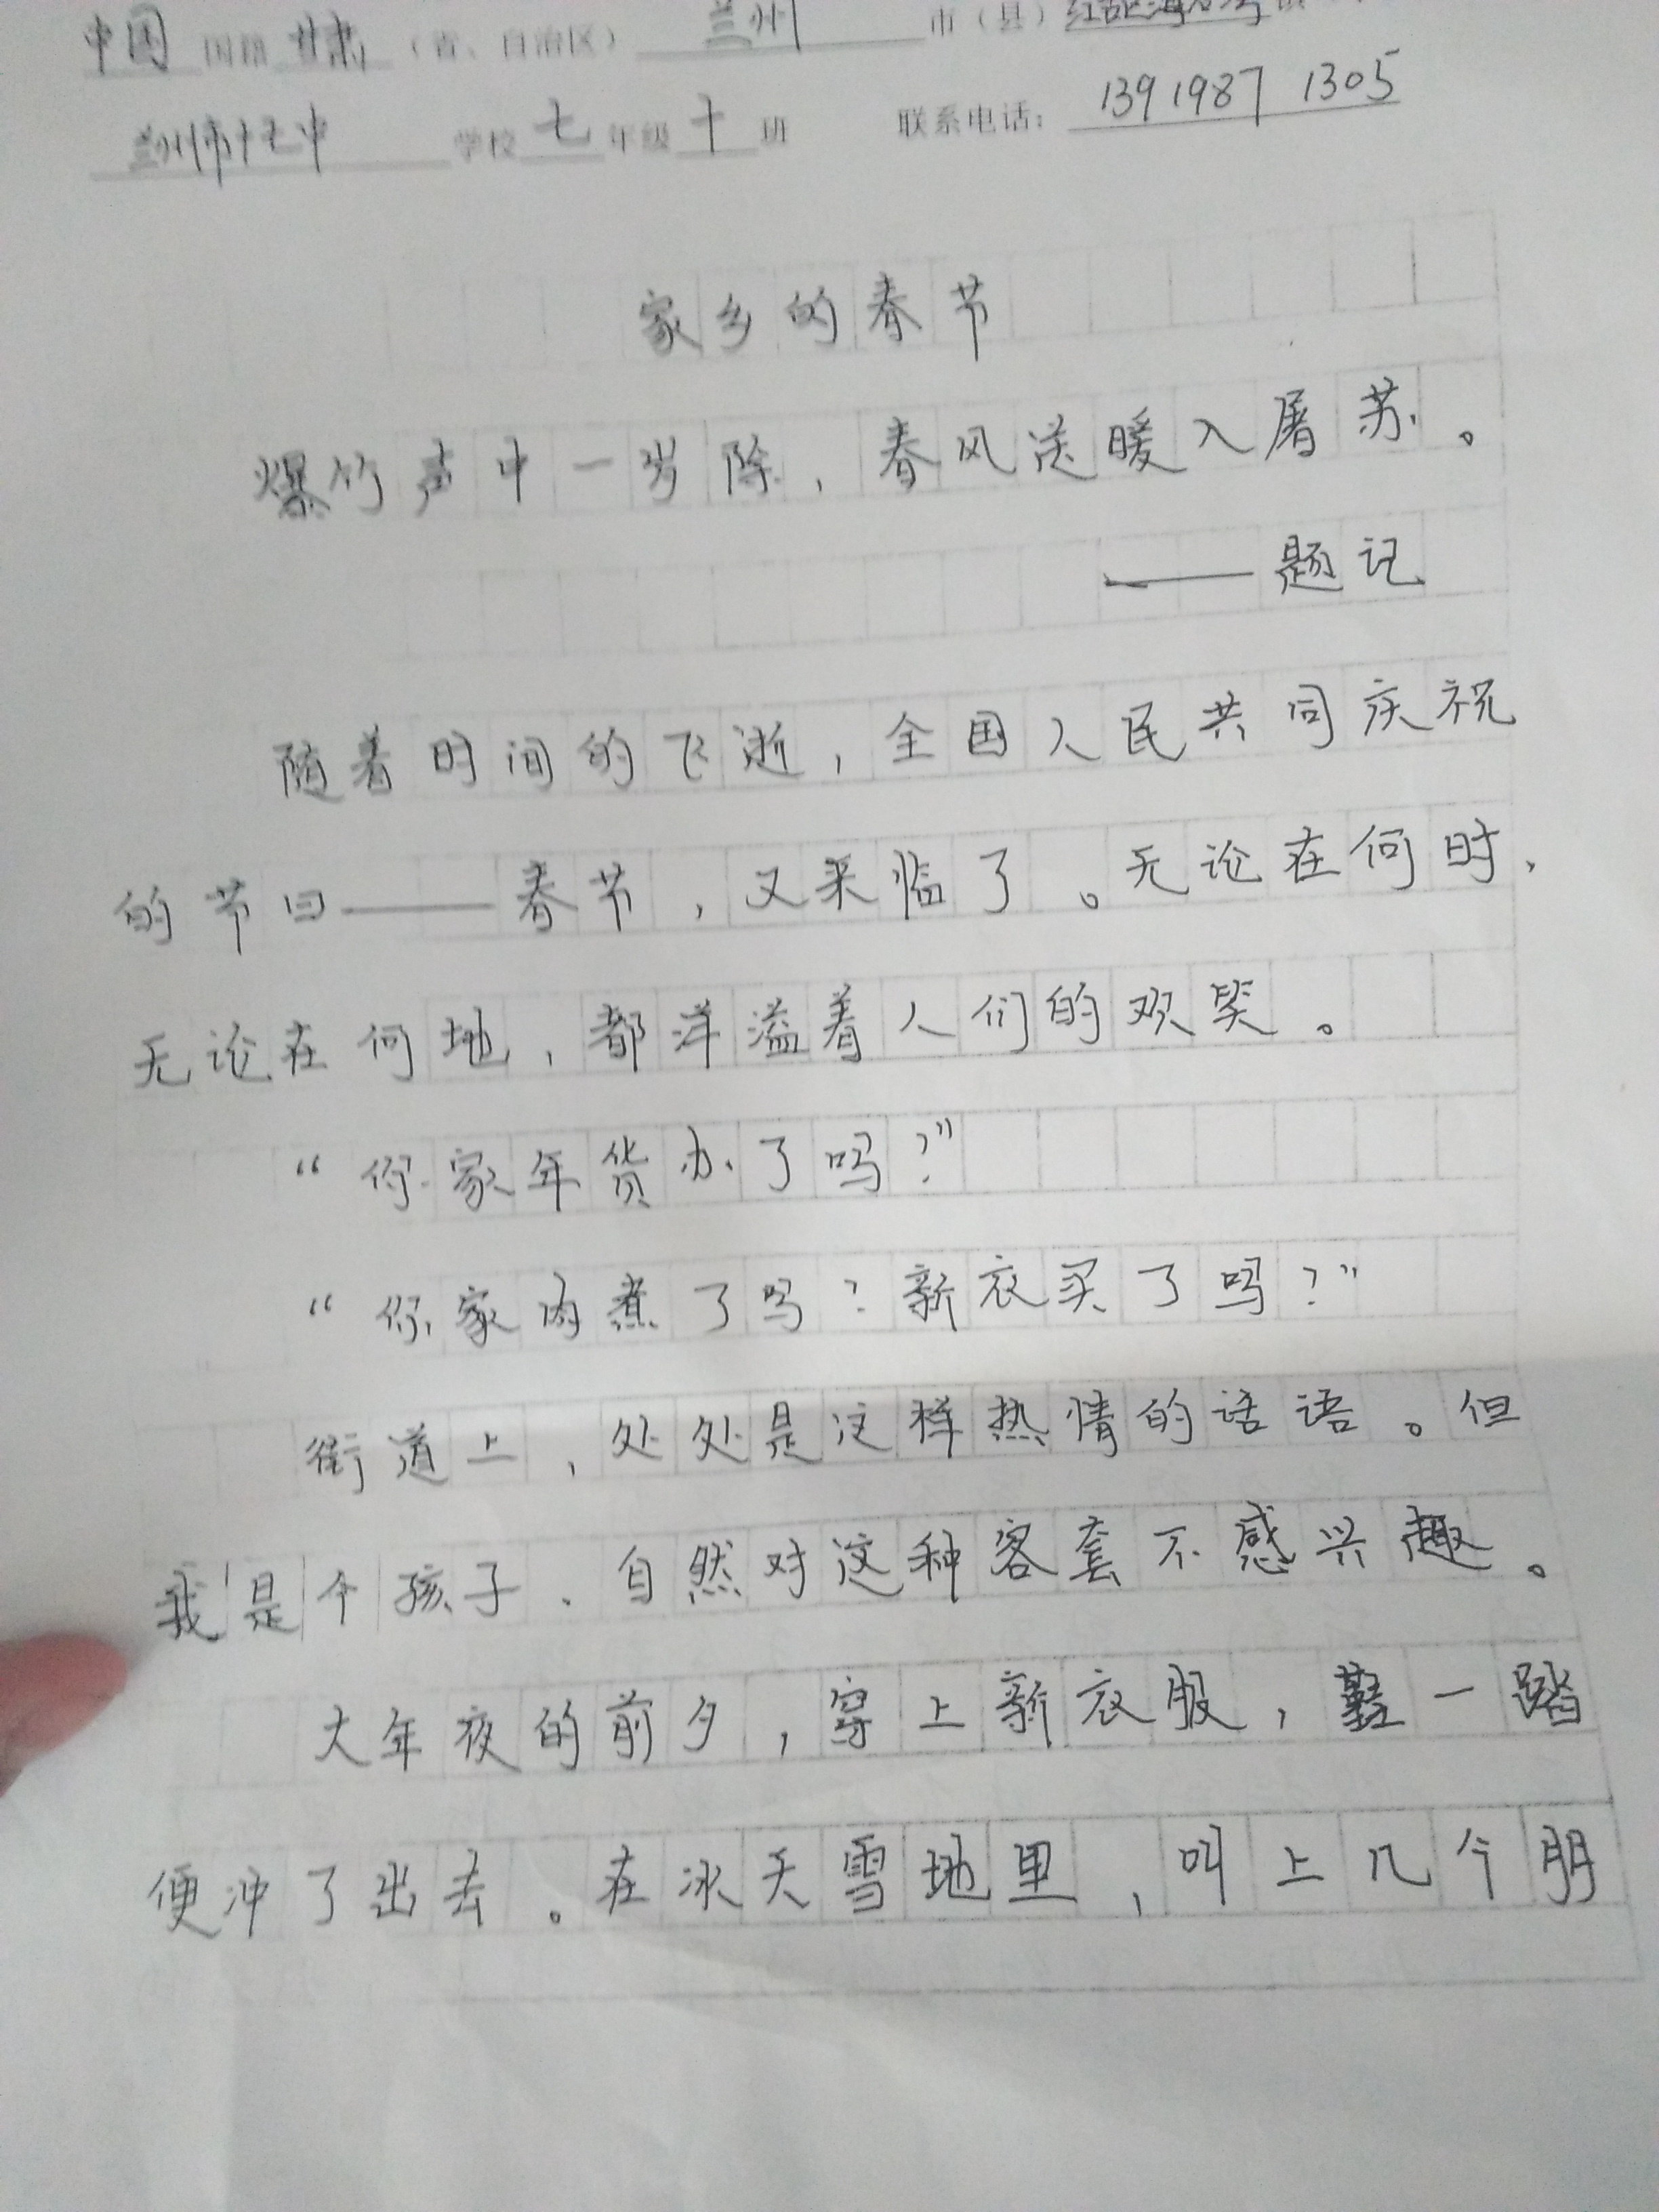 中国 国籍 甘肃（省、自治区） 兰州 市（县）红古区海石湾
兰州市十七中 学校 七 年级 十 班 联系电话：139 1987 1305
家乡的春节
爆竹声中一岁除，春风送暖入屠苏。
——题记
随着时间的飞逝，全国人民共同庆祝
的节日——春节，又来临了。无论在何时，
无论在何地，都洋溢着人们的欢笑。
“你家年货办了吗？”
“你家肉煮了吗？新衣买了吗？”
街道上，处处是这样热情的话语。但
我是个孩子、自然对这种客套不感兴趣。
大年夜的前夕，穿上新衣服，鞋一踏
便冲了出去。在冰天雪地里，叫上几个朋